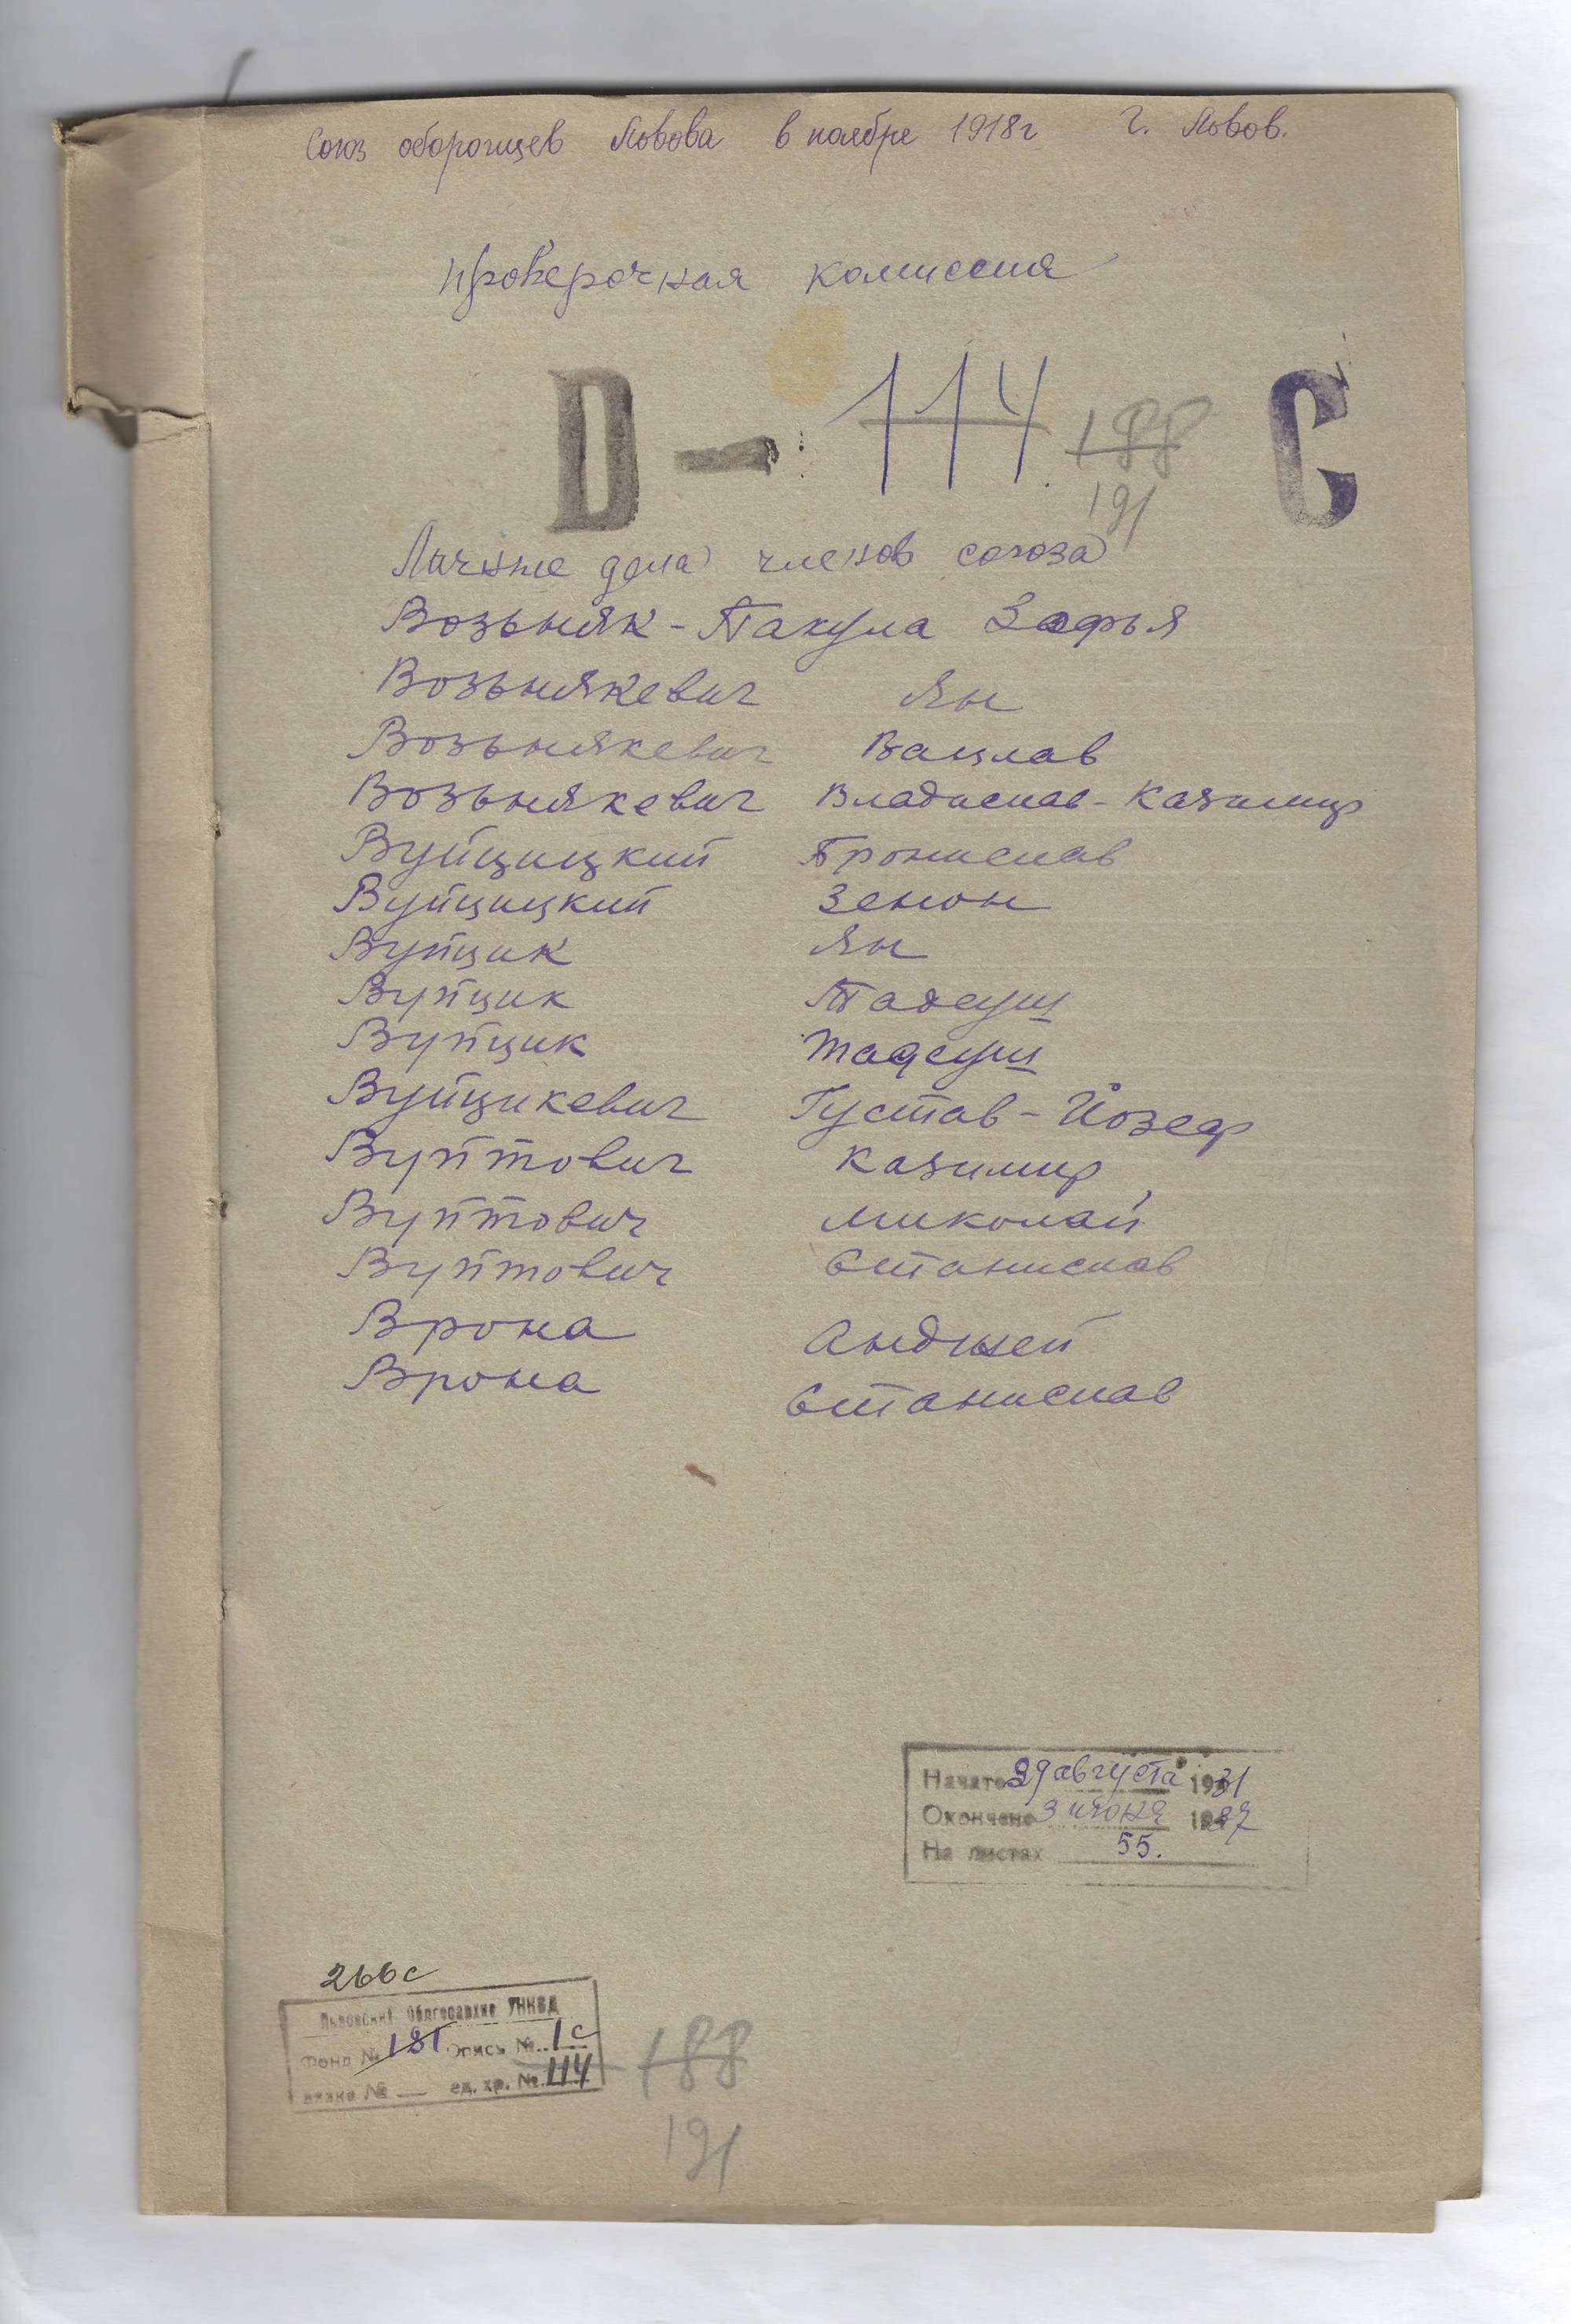 Союз оборонцев Львова в ноябре 1918г г. Львов.
Проверочная комиссия
D — 114 188 C
191
Личные дела членов союза
Возьняк - Пакула Зофья
Возьнякевич Ян
Возьнякевич Вацлав
Возьнякевич Владислав - Казимир
Вуйцицкий Бронислав
Вуйцицкий Зенон
Вуйцик Ян
Вуйцик Тадеуш
Вуйцик Тадеуш
Вуйцикевич Густав - Йозеф
Вуйтович Казимир
Вуйтович Миколай
Вуйтович Станислав
Врона Анджей
Врона Станислав
Начато 29 августа 1931
Окончено 3 июня 1937
На листах 55.
266с
Львовский Облгосархив УНКВД
Фонд № 181 Опись № 1с
вязка № — ед. хр. № 114 188
191